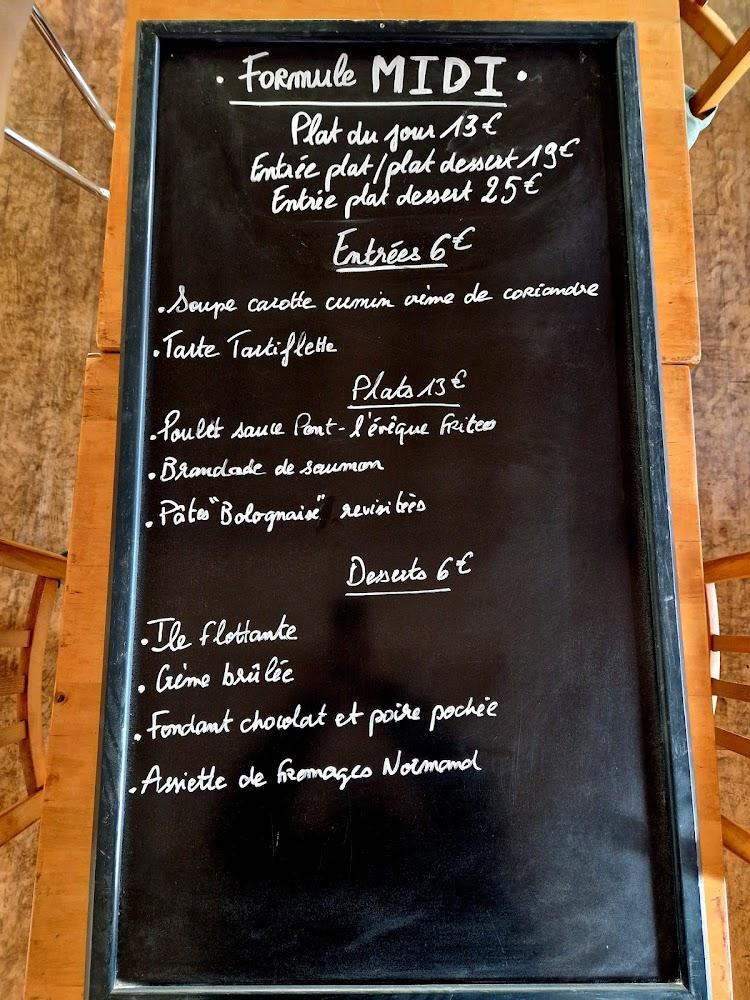 · Formule MIDI ·
Plat du jour 13€
Entrée plat/plat dessert 19€
Entrée plat dessert 25€
Entrées 6€
• Soupe carotte cumin crème de coriandre
• Tarte Tartiflette
Plats 13€
• Poulet sauce Pont-l'évêque frites
• Brandade de saumon
• Pâtes "Bolognaise" revisitées
Desserts 6€
• Ile flottante
• Crème brûlée
• Fondant chocolat et poire pochée
• Assiette de fromages Normand